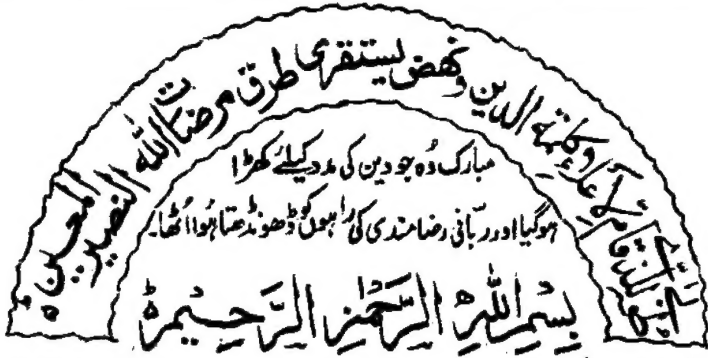 طُوبٰی للذی قام لاعلاء کلمة الدین ونهض یستقری طرق مرضات الله النصیر المعین ہ
مبارک وُہ جو دین کی مدد کیلئے کھڑا
ہوگیا اور ربّانی رضا مندی کی راہوں کو ڈھونڈھتا ہُوا اُٹھا۔
بِسْمِ اللّٰہِ الرَّحْمٰنِ الرَّحِیْمِ ہ